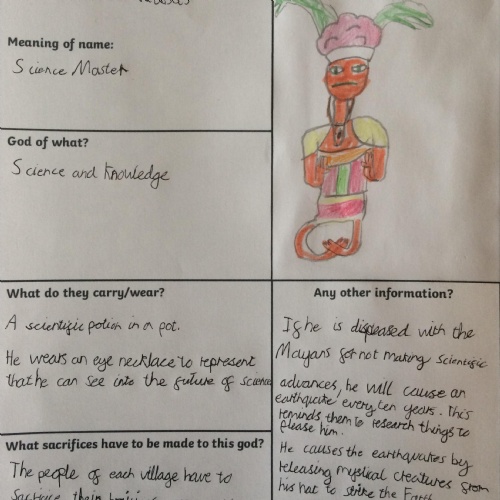 Meaning of name:
Science Master
God of what?
Science and knowledge
What do they carry/wear?
A scientific potion in a pot.
He wears an eye necklace to represent
that he can see into the future of science
What sacrifices have to be made to this god?
The people of each village have to
Any other information?
If he is displeased with the
Mayans for not making scientific
advances, he will cause an
earthquake every ten years. This
reminds them to research things to
please him.
He causes the earthquakes by
releasing mystical creatures from
his hat to strike the Earth